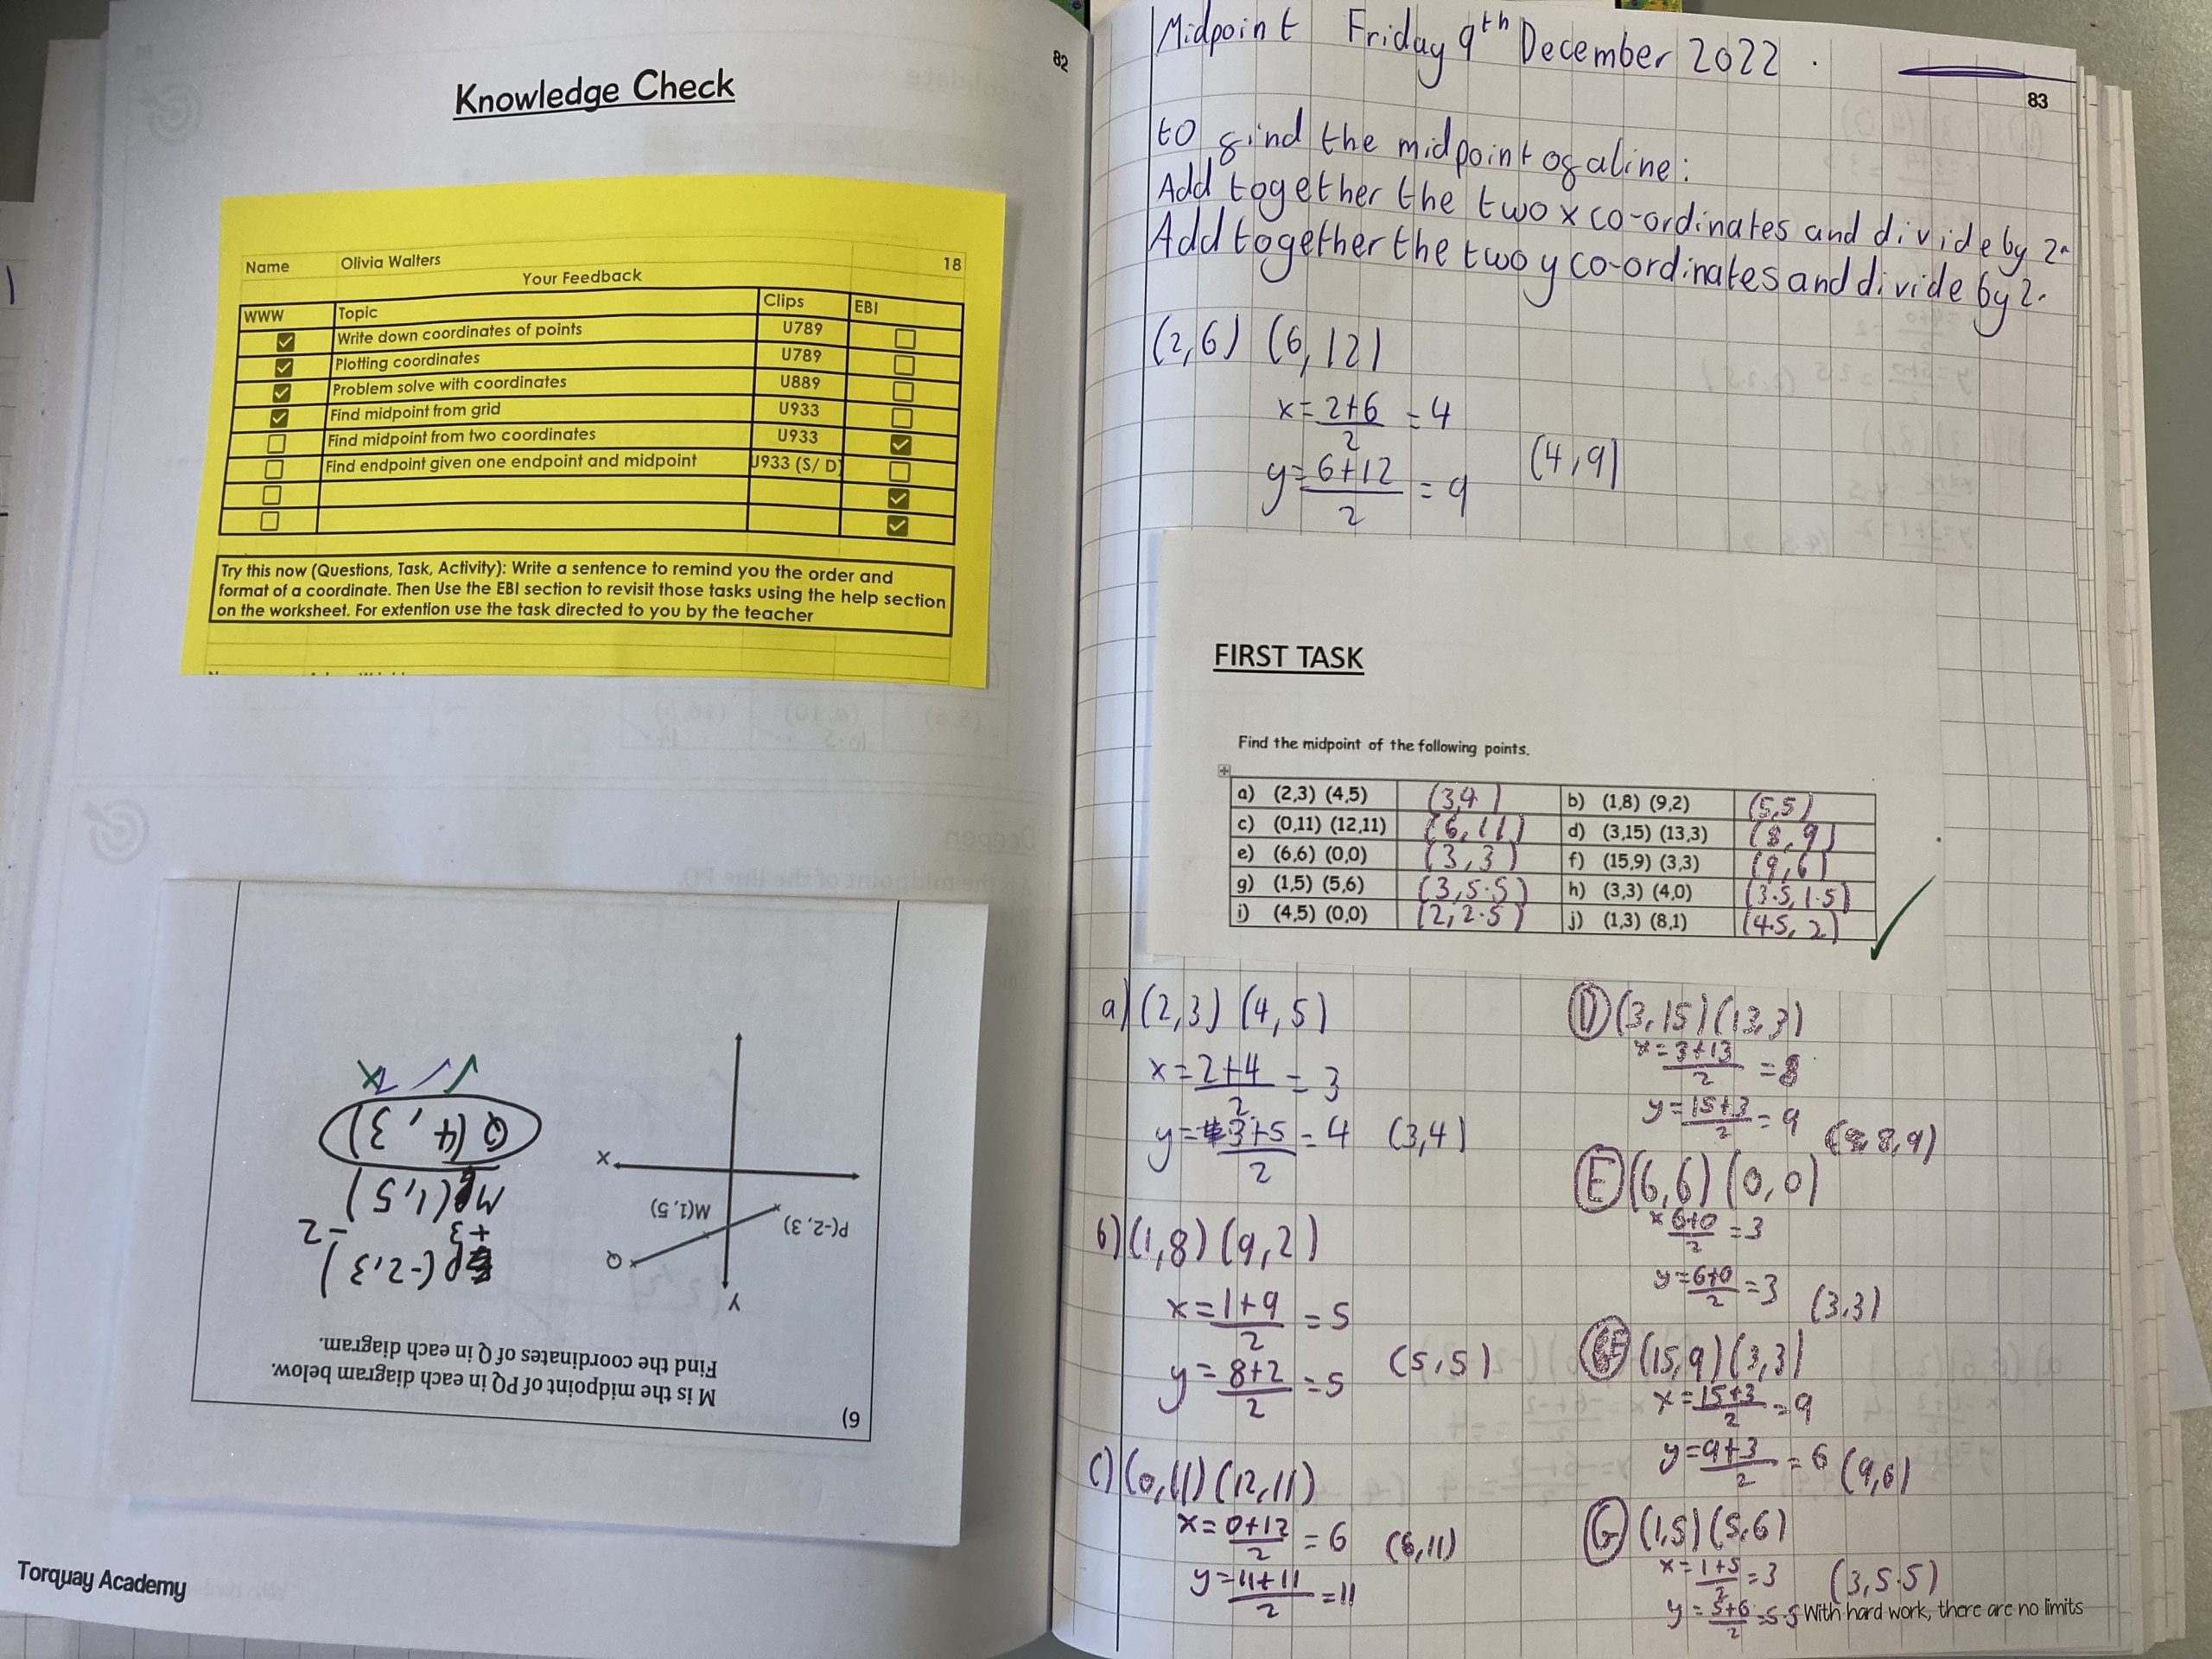 82
Knowledge Check
Name Olivia Walters 18
Your Feedback
WWW Topic Clips EBI
Write down coordinates of points U789
Plotting coordinates U789
Problem solve with coordinates U889
Find midpoint from grid U933
Find midpoint from two coordinates U933
Find endpoint given one endpoint and midpoint U933 (S/ D)
Try this now (Questions, Task, Activity): Write a sentence to remind you the order and
format of a coordinate. Then Use the EBI section to revisit those tasks using the help section
on the worksheet. For extention use the task directed to you by the teacher
6)
M is the midpoint of PQ in each diagram below.
Find the coordinates of Q in each diagram.
Y
Q
P(-2, 3)
M(1, 5)
X
P(-2,3)
+3 -2
M(1,5)
Q(4,3)
Torquay Academy
Midpoint Friday 9th December 2022.
83
to find the midpoint of a line:
Add together the two x co-ordinates and divide by 2.
Add together the two y co-ordinates and divide by 2.
(2,6) (6,12)
x=2+6/2 =4
y=6+12/2 =9 (4,9)
FIRST TASK
Find the midpoint of the following points.
a) (2,3) (4,5) (3,4) b) (1,8) (9,2) (5,5)
c) (0,11) (12,11) (6,11) d) (3,15) (13,3) (8,9)
e) (6,6) (0,0) (3,3) f) (15,9) (3,3) (9,6)
g) (1,5) (5,6) (3,5.5) h) (3,3) (4,0) (3.5,1.5)
i) (4,5) (0,0) (2,2.5) j) (1,3) (8,1) (4.5,2)
a) (2,3) (4,5)
x=2+4/2 =3
y=3+5/2 =4 (3,4)
b) (1,8) (9,2)
x=1+9/2 =5
y=8+2/2 =5 (5,5)
c) (0,11) (12,11)
x=0+12/2 =6 (6,11)
y=11+11/2 =11
D (3,15) (13,3)
x=3+13/2 =8
y=15+3/2 =9 (8,9)
E (6,6) (0,0)
x 6+0/2 =3
y=6+0/2 =3 (3,3)
F (15,9) (3,3)
x=15+3/2 =9
y=9+3/2 =6 (9,6)
G (1,5) (5,6)
x=1+5/2 =3 (3,5.5)
y=5+6/2 =5.5
With hard work, there are no limits